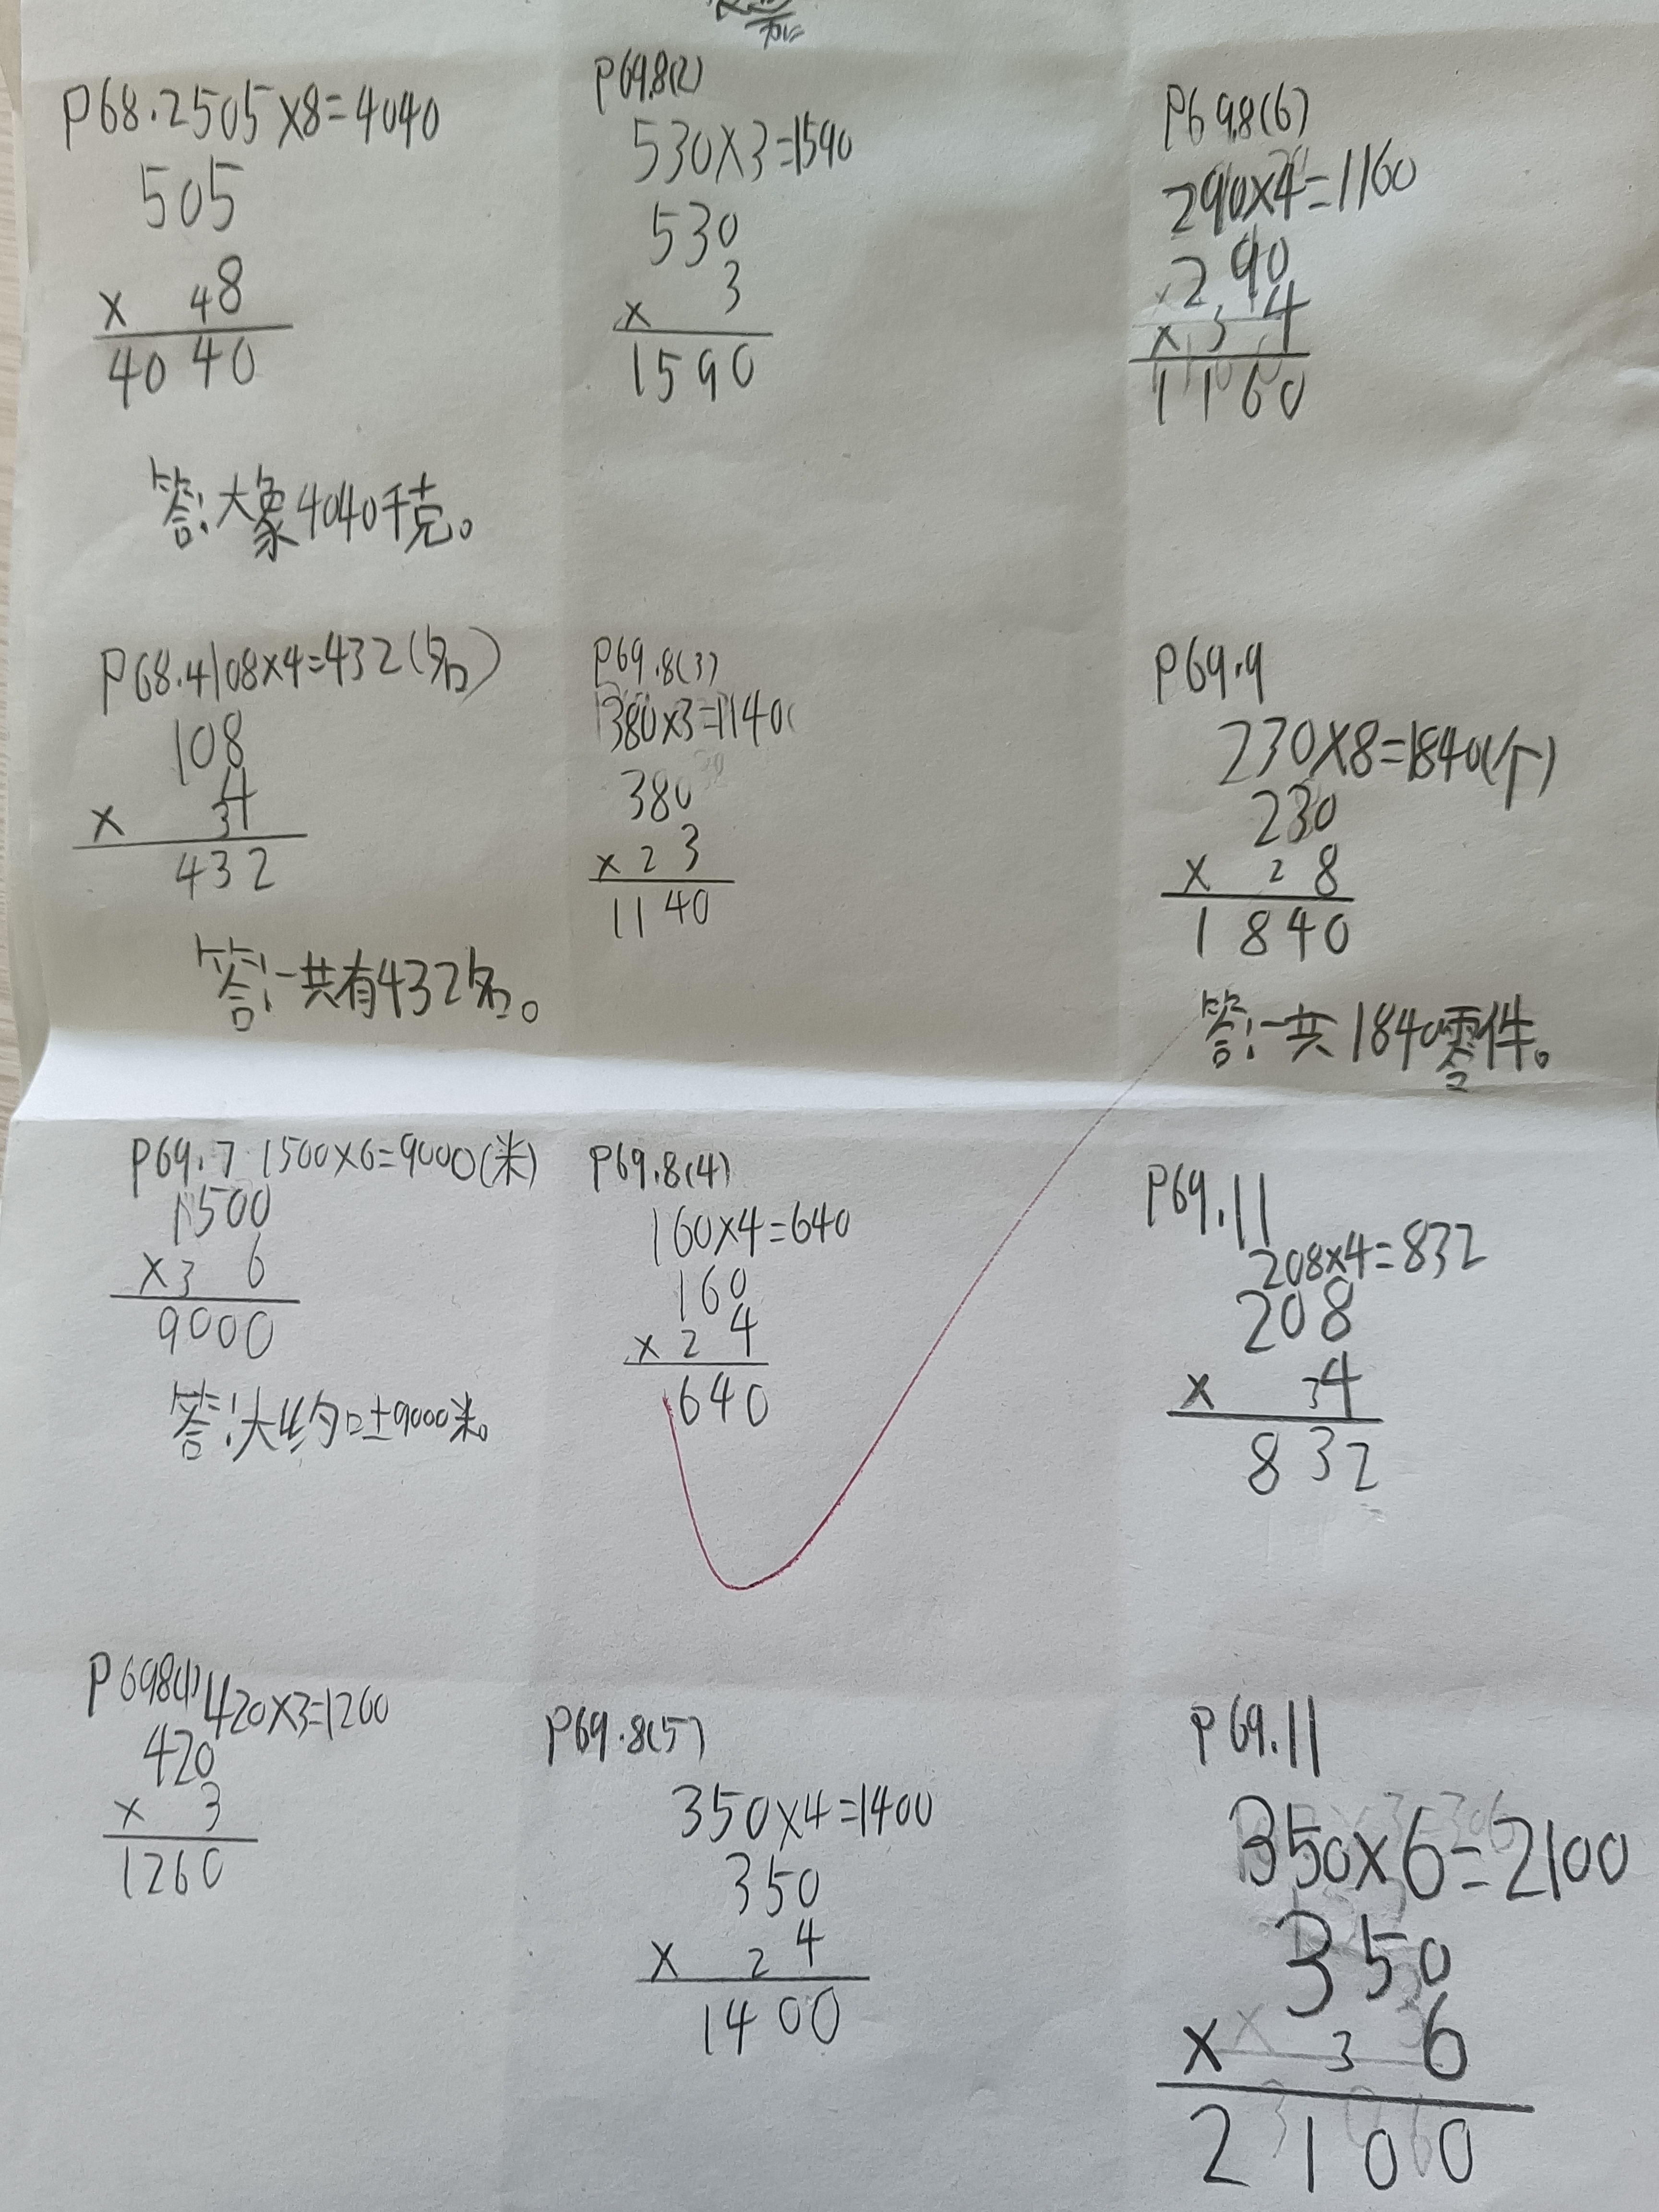 P68.2 505×8=4040
505
× 48
4040
答:大象4040千克。
P68.4 108×4=432(名)
108
× 34
432
答:一共有432名。
P69.7 1500×6=9000(米)
1500
×3 6
9000
答:大约口土9000米。
P69 8(1) 420×3=1260
420
× 3
1260
P69.8(2)
530×3=1590
530
× 3
1590
P69.8(3)
380×3=1140
380
×2 3
1140
P69.8(4)
160×4=640
160
×2 4
640
P69.8(5)
350×4=1400
350
× 2 4
1400
P69.8(6)
290×4=1160
290
×3 4
1160
P69.9
230×8=1840(个)
230
× 2 8
1840
答:一共1840零件。
P69.11
208×4=832
208
× 34
832
P69.11
350×6=2100
350
× 3 6
2100